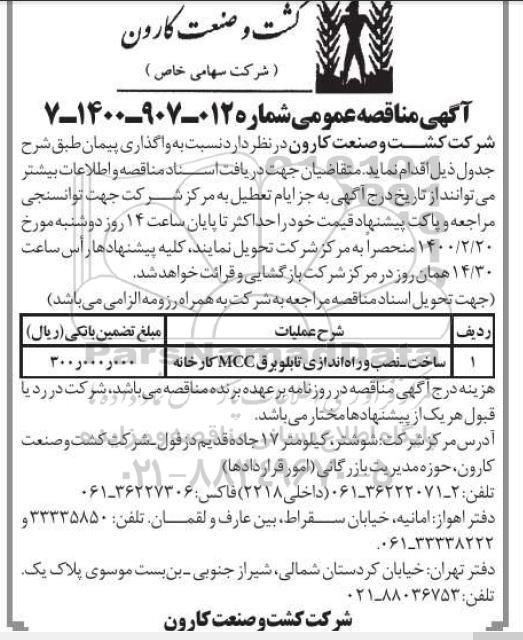 کشت و صنعت کارون
( شرکت سهامی خاص )
آگهی مناقصه عمومی شماره ۰۱۲-۹۰۷-۱۴۰۰-۷
شرکت کشت و صنعت کارون در نظر دارد نسبت به واگذاری پیمان طبق شرح
جدول ذیل اقدام نماید. متقاضیان جهت دریافت اسناد مناقصه و اطلاعات بیشتر
می توانند از تاریخ درج آگهی به جز ایام تعطیل به مرکز شرکت جهت توانسنجی
مراجعه و پاکت پیشنهاد قیمت خود را حداکثر تا پایان ساعت ۱۴ روز دوشنبه مورخ
۱۴۰۰/۲/۲۰ منحصراً به مرکز شرکت تحویل نمایند، کلیه پیشنهادها رأس ساعت
۱۴/۳۰ همان روز در مرکز شرکت بازگشایی و قرائت خواهد شد.
(جهت تحویل اسناد مناقصه مراجعه به شرکت به همراه رزومه الزامی می باشد)
ردیف شرح عملیات مبلغ تضمین بانکی (ریال)
۱ ساخت-نصب و راه اندازی تابلو برق MCC کارخانه ۳۰۰٫۰۰۰٫۰۰۰
هزینه درج آگهی مناقصه در روزنامه بر عهده برنده مناقصه می باشد، شرکت در رد یا
قبول هر یک از پیشنهادها مختار می باشد.
آدرس مرکز شرکت: شوشتر، کیلومتر ۱۷ جاده قدیم دزفول-شرکت کشت و صنعت
کارون، حوزه مدیریت بازرگانی (امور قراردادها)
تلفن: ۲-۳۶۲۲۲۰۷۱-۰۶۱ (داخلی ۲۲۱۸) فاکس: ۳۶۲۲۷۳۰۶-۰۶۱
دفتر اهواز: امانیه، خیابان سقراط، بین عارف و لقمان. تلفن: ۳۳۳۳۵۸۵۰ و
۳۳۳۳۸۲۲۲-۰۶۱.
دفتر تهران: خیابان کردستان شمالی، شیراز جنوبی -بن بست موسوی پلاک یک.
تلفن: ۸۸۰۳۶۷۵۳-۰۲۱
شرکت کشت و صنعت کارون
ParsNamadData
۰۲۱-۸۸۳۴۹۶۷۰-۵